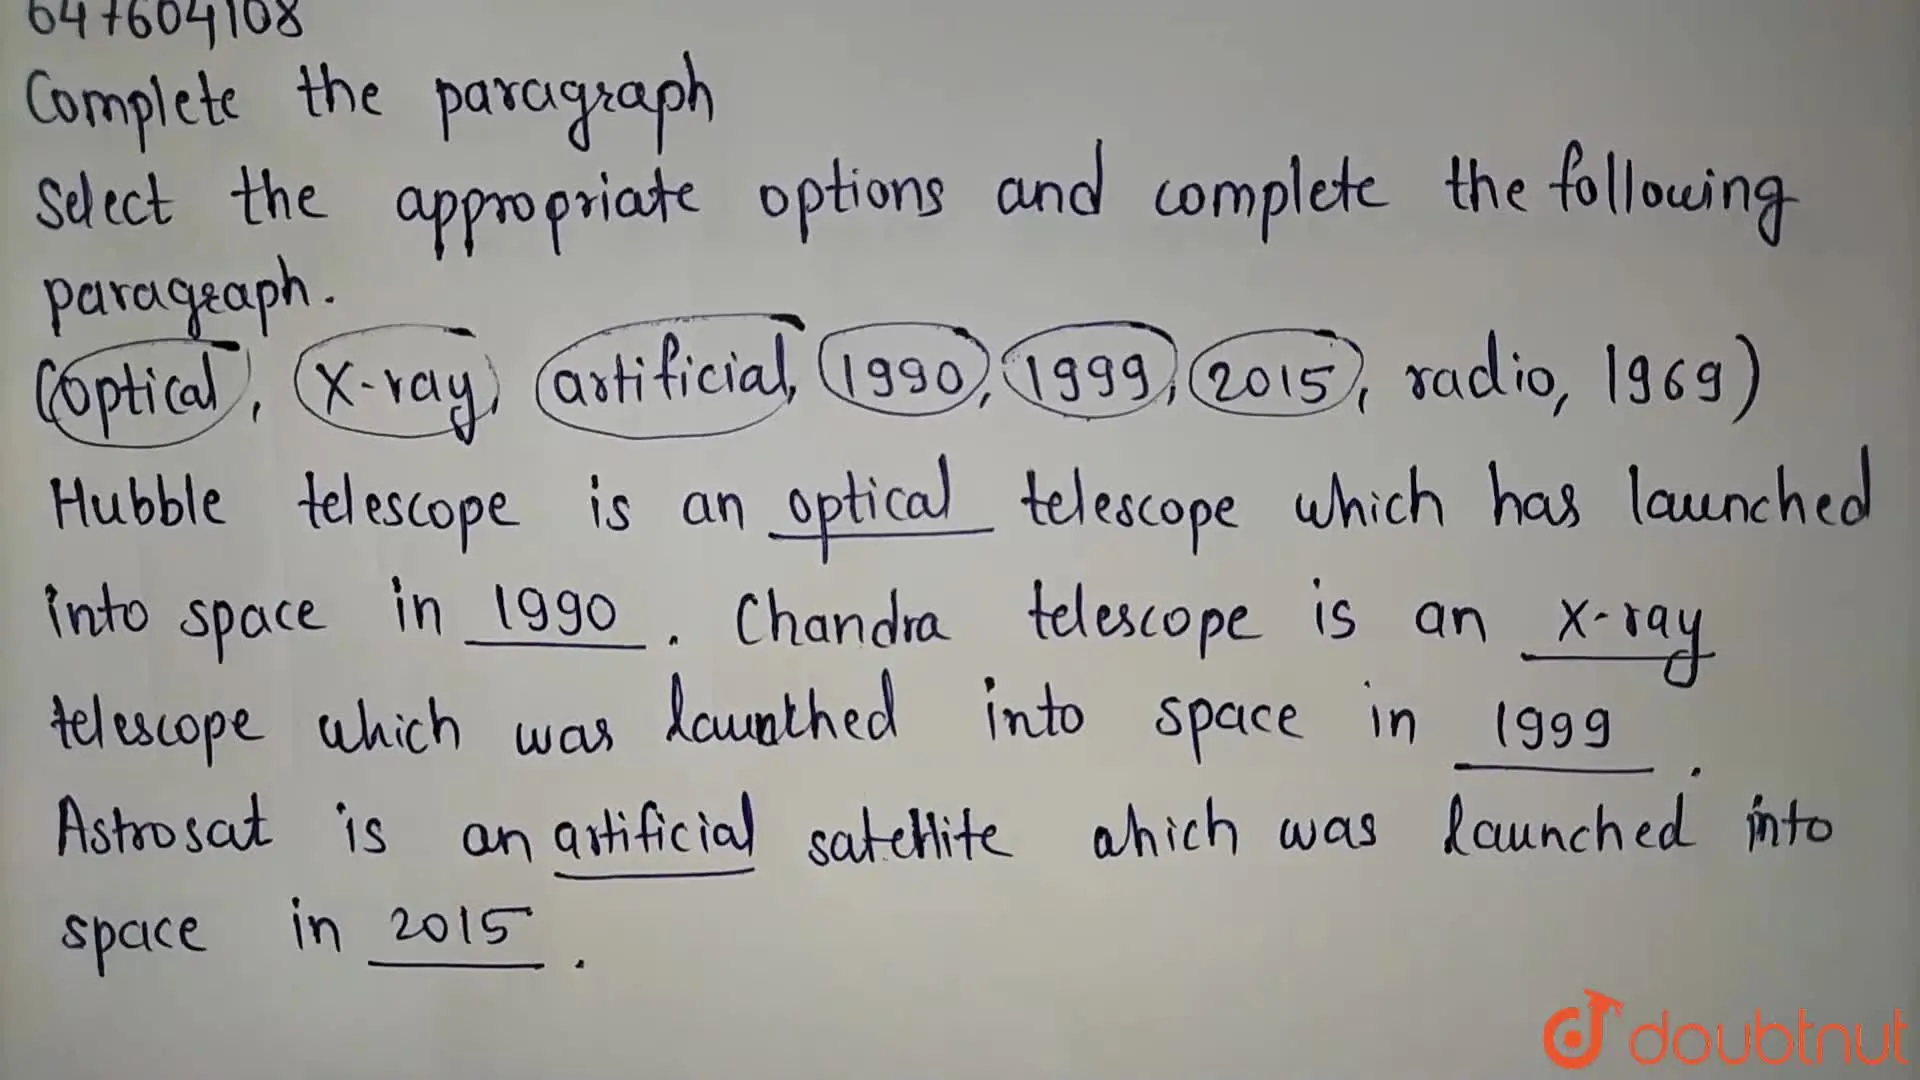 647604108
Complete the paragraph
Select the appropriate options and complete the following
paragraph.
(optical, X-ray, artificial, 1990, 1999, 2015, radio, 1969)
Hubble telescope is an optical telescope which has launched
into space in 1990. Chandra telescope is an X-ray
telescope which was launched into space in 1999.
Astrosat is an artificial satellite which was launched into
space in 2015.
doubtnut